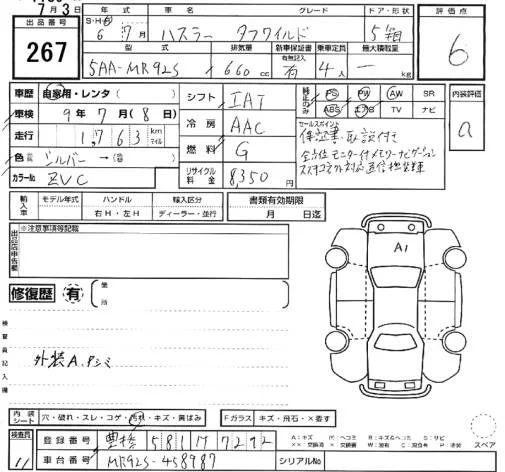 7月3日
出品番号 267
S・H・R 年式 車名 グレード ドア・形状 評価点
6年7月 ハスラー タフワイルド 5 6
型式 排気量 新車保証書 乗車定員 最大積載量
有無記入
5AA-MR92S 660cc 有 4人 — kg
車歴 自家用・レンタ( ) シフト IAT 純正のみ PS PW AW SR 内装評価
ABS エアB TV ナビ
車検 9年7月(8日) 冷房 AAC セールスポイント a
保証書・取説付き
走行 1,763 km マイル 燃料 G 全方位モニター付メモリーナビゲーション
スズキコネクト対応通信機装着
色 シルバー→(替)
カラーNo. ZVC リサイクル料金 8,350円
輸入車 モデル年式 ハンドル 輸入区分 書類有効期限
右H・左H ディーラー・並行 月 日迄
出品店申告欄 ※注意事項等記載
A1
修復歴 有 箇所
検査員記入欄
外装A,Pシミ
内装シート 穴・破れ・スレ・コゲ・汚れ・キズ・黄ばみ Fガラス キズ・飛石・X要す
検査員 11
登録番号 豊橋 581 ワ 7292
車台番号 MR92S-458987 シリアルNo
A:キズ P:ヘコミ B:キズ&ヘコミ S:サビ
スペア